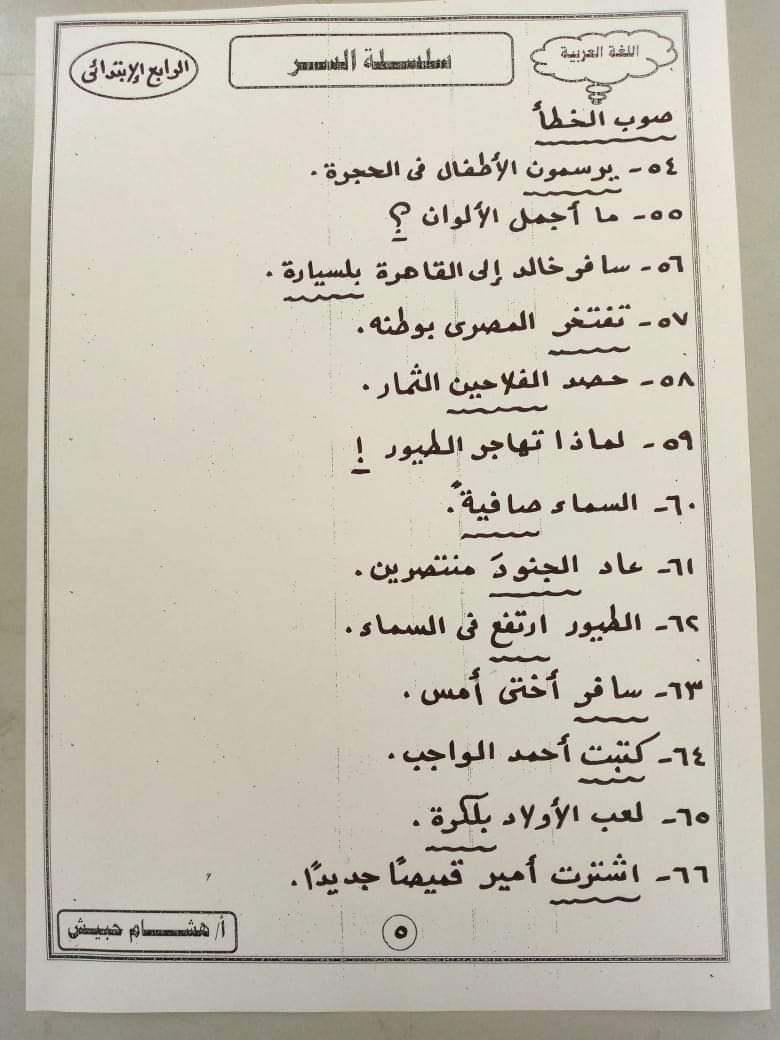 اللغة العربية
سلسلة السر
الرابع الإبتدائى
صوب الخطأ
٥٤- يرسمون الأطفال فى الحجرة .
٥٥- ما أجمل الألوان ؟
٥٦- سافر خالد إلى القاهرة بلسيارة .
٥٧- تفتخر المصرى بوطنه .
٥٨- حصد الفلاحين الثمار .
٥٩- لماذا تهاجر الطيور !
٦٠- السماء صافيةً .
٦١- عاد الجنودَ منتصرين .
٦٢- الطيور ارتفع فى السماء .
٦٣- سافر أختى أمس .
٦٤- كتبت أحمد الواجب .
٦٥- لعب الأولاد بلكرة .
٦٦- اشترت أمير قميصًا جديدًا .
٥
أ/ هشام حبيش